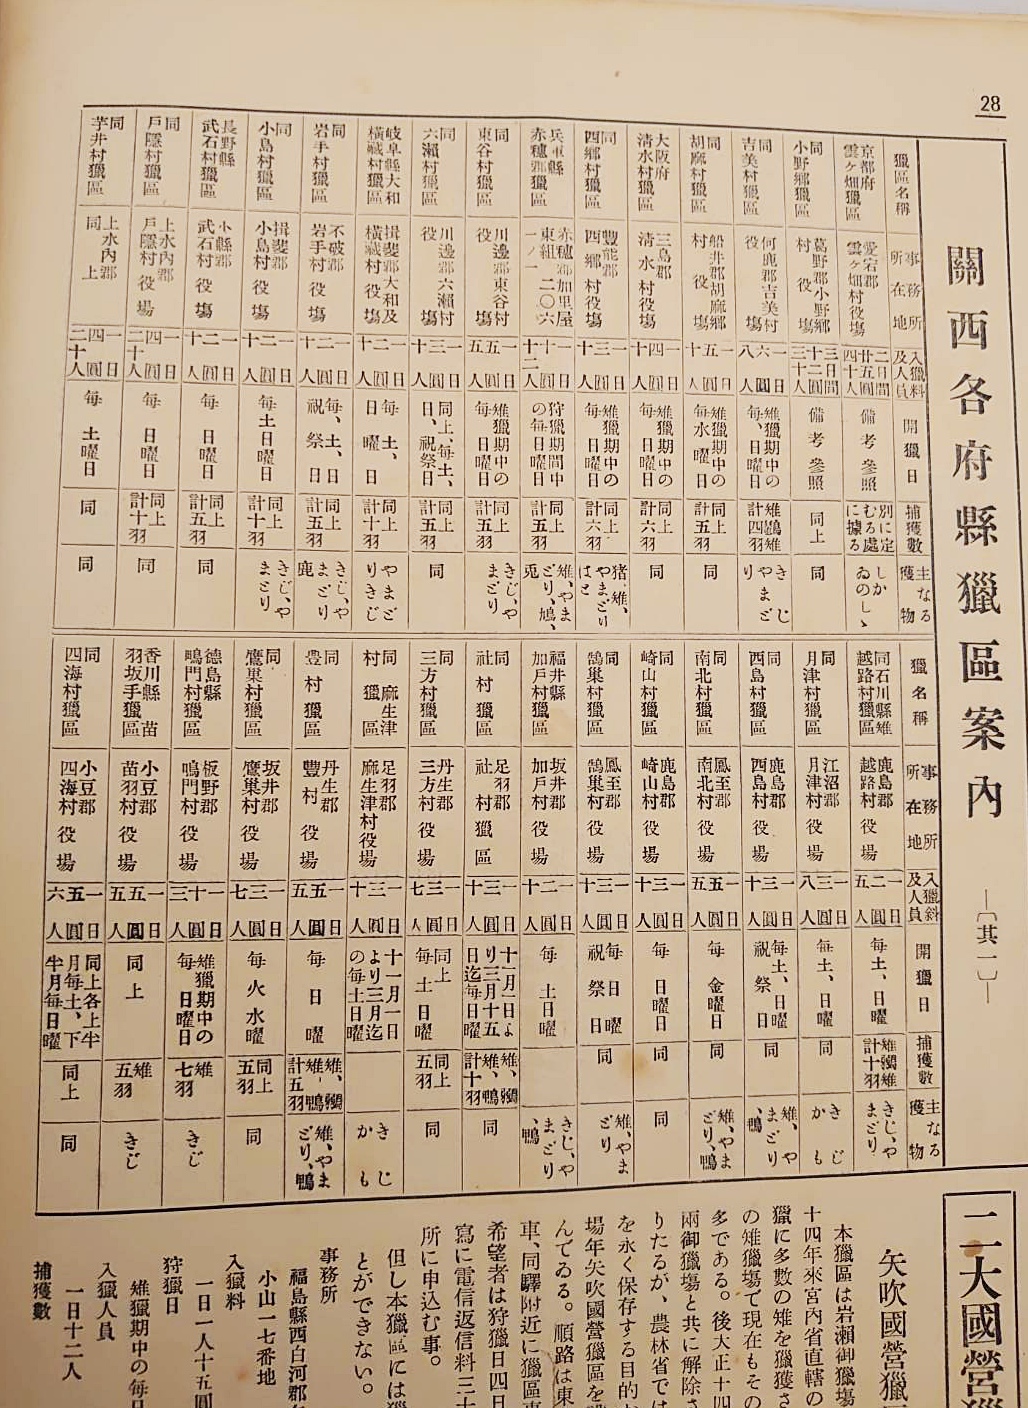 28
關西各府縣獵區案內 ―〔其一〕―
獵區名稱
事務所所在地
入獵料及人員
開獵日
捕獲數
主なる獲物
京都府雲ケ畑獵區
愛宕郡雲ケ畑村役場
二日間廿五圓四十人
備考參照
別に定むる處に據る
しかゐのしゝ
同小野鄉獵區
葛野郡小野鄉村役場
三日間十二圓三十人
備考參照
同上
同
同吉美村獵區
何鹿郡吉美村役場
一日六圓八人
雉獵期中の每、日曜日
きじやまどり
同胡麻村獵區
船井郡胡麻鄉村役場
一日五圓十人
雉獵期中の每水曜日
同上計五羽
同
大阪府淸水村獵區
三島郡淸水村役場
一日四圓十人
雉獵期中の每日曜日
同上計六羽
同
同西鄉村獵區
豐能郡西鄉村役場
一日三圓十人
雉獵期中の每日曜日
同上計六羽
猪、雉、やまどりはと
兵庫縣赤穗郡獵區
赤穗郡加里屋東組二〇六一ノ一
一日十圓十二人
狩獵期間中の每日曜日
同上計五羽
雉、やまどり、鳩、兎
同東谷村獵區
川邊郡東谷村役場
一日五圓五人
雉獵期中の每、日曜日
同上計五羽
きじ、やまどり
同六瀨村獵區
川邊郡六瀨村役場
一日三圓十人
同上、每土、日、祝祭日
同上計五羽
同
岐阜縣大和橫藏村獵區
揖斐郡大和及橫藏村役場
一日二圓十人
每土、日曜日
同上計十羽
やまどりきじ
同岩手村獵區
不破郡岩手村役場
一日二圓十人
每、土、日、祝祭日
同上計五羽
きじ、やまどり鹿
同小島村獵區
揖斐郡小島村役場
一日二圓十人
每土日曜日
同上計十羽
きじ、やまどり
長野縣武石村獵區
小縣郡武石村役場
一日二圓十人
每日曜日
同上計五羽
同
同戶隱村獵區
上水內郡戶隱村役場
一日四圓二十人
每日曜日
同上計十羽
同
同芋井村獵區
上水內郡同上
一日四圓三十人
每土曜日
同
同
獵名稱
事務所所在地
入獵料及人員
開獵日
捕獲數
主なる獲物
同石川縣雉越路村獵區
鹿島郡越路村役場
一日二圓五人
每土、日曜
計十羽
きじ、やまどり
同月津村獵區
江沼郡月津村役場
一日三圓八人
每土、日曜
同
きじかも
同西島村獵區
鹿島郡西島村役場
一日三圓十人
每土、日曜祝祭日
同
雉、やまどり、鴨
同南北村獵區
鳳至郡南北村役場
一日五圓五人
每金曜日
同
雉、やまどり、鴨
同崎山村獵區
鹿島郡崎山村役場
一日三圓十人
每日曜日
同
同
同鵠巢村獵區
鳳至郡鵠巢村役場
一日三圓十人
每日曜祝祭日
同
雉、やまどり
福井縣加戶村獵區
坂井郡加戶村役場
一日二圓十人
每土日曜
きじ、やまどり、鴨
同社村獵區
足羽郡社村獵區
一日三圓十人
十一月一日より三月十五日迄每日曜日
同
同三方村獵區
丹生郡三方村役場
一日三圓七人
同上每土日曜
同上五羽
同
同麻生津村獵區
足羽郡麻生津村役場
一日三圓十人
十一月一日より三月迄の每土日曜
きじかも
同豊村獵區
丹生郡豐村役場
一日五圓五人
每日曜
雉、やまどり、鴨
同鷹巢村獵區
坂井郡鷹巢村役場
一日三圓七人
每火水曜
同上五羽
同
德島縣鳴門村獵區
板野郡鳴門村役場
一日十圓三人
雉獵期中の每日曜日
雉七羽
きじ
香川縣苗羽坂手獵區
小豆郡苗羽村役場
一日五圓五人
同上
雉五羽
きじ
同四海村獵區
小豆郡四海村役場
一日五圓六人
同上各上半月每土、下半月每日曜
同上
同
二大國營獵
矢吹國營獵
本獵區は岩瀨御獵場
十四年來宮內省直轄の
獵に多數の雉を獵獲さ
の雉獵場で現在もその
多である。後大正十四
兩御獵場と共に解除さ
りたるが、農林省では
を永く保存する目的
場年矢吹國營獵區を
んでゐる。順路は東
車、同驛附近に獵區事
希望者は狩獵日四日
寫に電信返信料三十
所に申込む事。
但し本獵區には獵
とができない。
事務所
福島縣西白河郡
小山一七番地
入獵料
一日一人十五圓
狩獵日
雉獵期中の每日
入獵人員
一日十二人
捕獲數